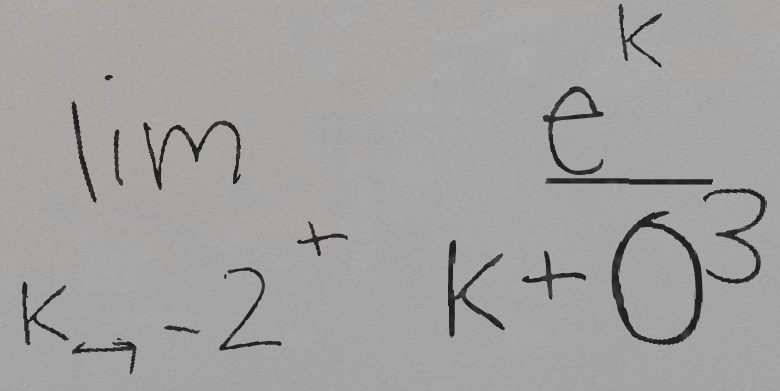 lim_{k → -2^+} \frac{e^k}{k + 0^3}